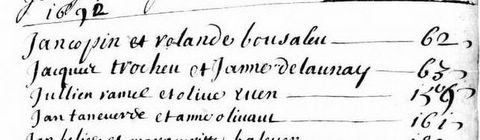 1692
Jan copin et rolande bousaleu 62
Jacques trocheu et Janne delaunay 63
Jullien ramel et olive ruen
Jan taneverde et anne olivaut 161
Jan